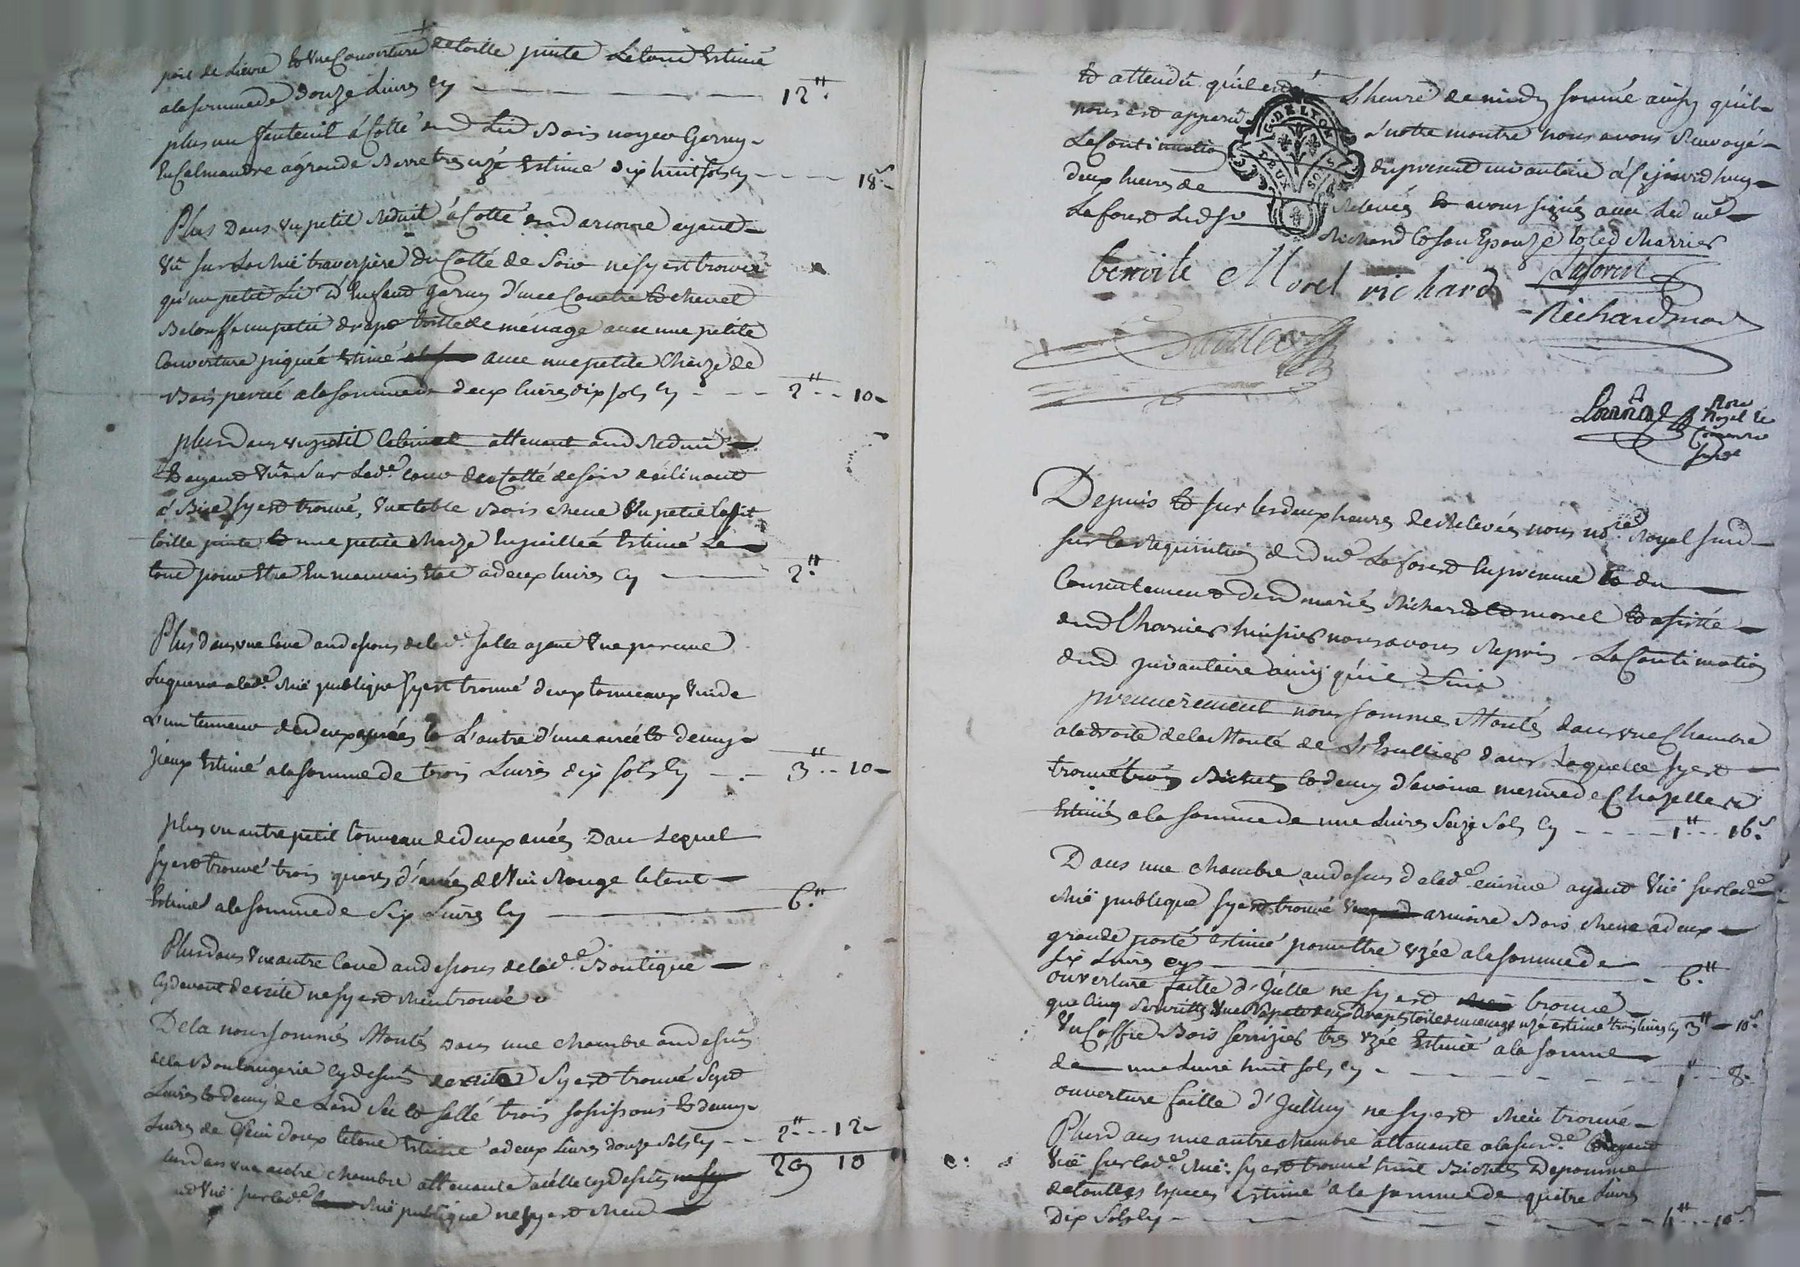 poil de Lièvre et une Couverture de toille peinte Le tout Estimé
a la somme de douze Livres Cy 12"
plus un fauteuil à Cotté dud Lit Bois noyer Garny
En Calmandre a grande Barre tres uzé Estimé dix huit sols Cy 18s
Plus Dans un petit Reduit à Cotté dud armoire ayant
Vû sur La Ruë traversiere du Cotté de Soir ne sy est trouvé
qu'un petit Lit d'Enfant garny d'une Coutre et chevet
Balouffe un petit drap toille de ménage avec une petite
Couverture piquée Estimé avec une petite Chaize de
Bois percée a la somme de deux livres dix sols Cy 2" 10
plus dans un petit Cabinet attenant aud Reduit
Et ayant Vû sur Lad.e Cour du Cotté de soir déclinant
à Bize sy est trouvé, une table Bois chene un petit
toille peinte et une petite chaize Enpaillée Estimé Le
tout pour Etre En mauvais Etat a deux livres Cy 2"
Plus dans une Cave au dessous de lad.e salle ayant une
sy est trouvé deux tonneaux vuide
L'un teneur de deux anées et L'autre d'une anée et demy
vieux Estimé a la somme de trois Livres dix sols Cy 3" 10
plus un autre petit tonneau de deux anées Dans Lequel
sy est trouvé trois quarts d'anées de Vin Rouge le tout
Estimé a la somme de Six Livres Cy 6"
Plus dans une autre Cave au dessous de lad.e Boutique
Cy devant décrite ne sy est Rien trouvé
De la nous sommes Monté Dans une chambre au dessus
de la Boulangerie Cy dessus décrite Sy est trouvé Sept
Livres et demy de Lard Sec et sallé trois sossissons et demy
Livres de le tout Estimé a deux Livres douze sols Cy 2" 12
29 10
plus dans une autre chambre attenante a celle Cy dessus
ayant Vuë sur lad.e Ruë publique ne sy est Rien
Et attendu qu'il est L'heure de midy sonné ainsy qu'il
nous est apparu à notre montre nous avons Renvoyé
La Continuation du present inventaire à Cejourd'huy
deux heures de Relevée et avons signé avec Led m.e
Laforest Led sr Richard et son Epouze et led Charrier
G. DE LYON
DEUX SOLS
benoite Morel richard Laforest
Richard
Not.e
Royal
Depuis et sur les deux heures de Relevée nous no.re Royal sud
sur la Requisition dud m.e Laforest En presence et du
Consentement desd mariés Richard et morel et assisté
dud Charrier huissier nous avons Repris La Continuation
dud inventaire ainsy qu'il Suit
premierement nous sommes Monté dans une Chambre
a la droite de la Monté de L'Escallier dans Laquelle sy est
trouvé trois Bichets et demy d'avoine mesure de Chazelle
Estimés a la somme de une Livres Seize Sols Cy 1" 16s
Dans une chambre au dessus de lad.e cuisine ayant Vuë sur lad.e
Ruë publique sy est trouvé armoire Bois chene a deux
grande porte estimé pour etre uzée a la somme de
six Livres Cy 6"
ouverture faitte d'Icelle ne sy est trouvé
que Cinq deux draps toile de menage uzé estimé trois livres Cy 3" 10s
Un Coffre Bois serrizier tres uzée Estimé a la somme
de une Livre huit sols Cy 1" 8
ouverture faitte d'Icelluy ne sy est Rien trouvé
Plus dans une autre chambre attenante a la sus d.e
Vuë sur lad.e Ruë sy est trouvé huit Bichets De pomme
de touttes Especes Estimé a la somme de quatre Livres
Dix Sols Cy 4" 10s